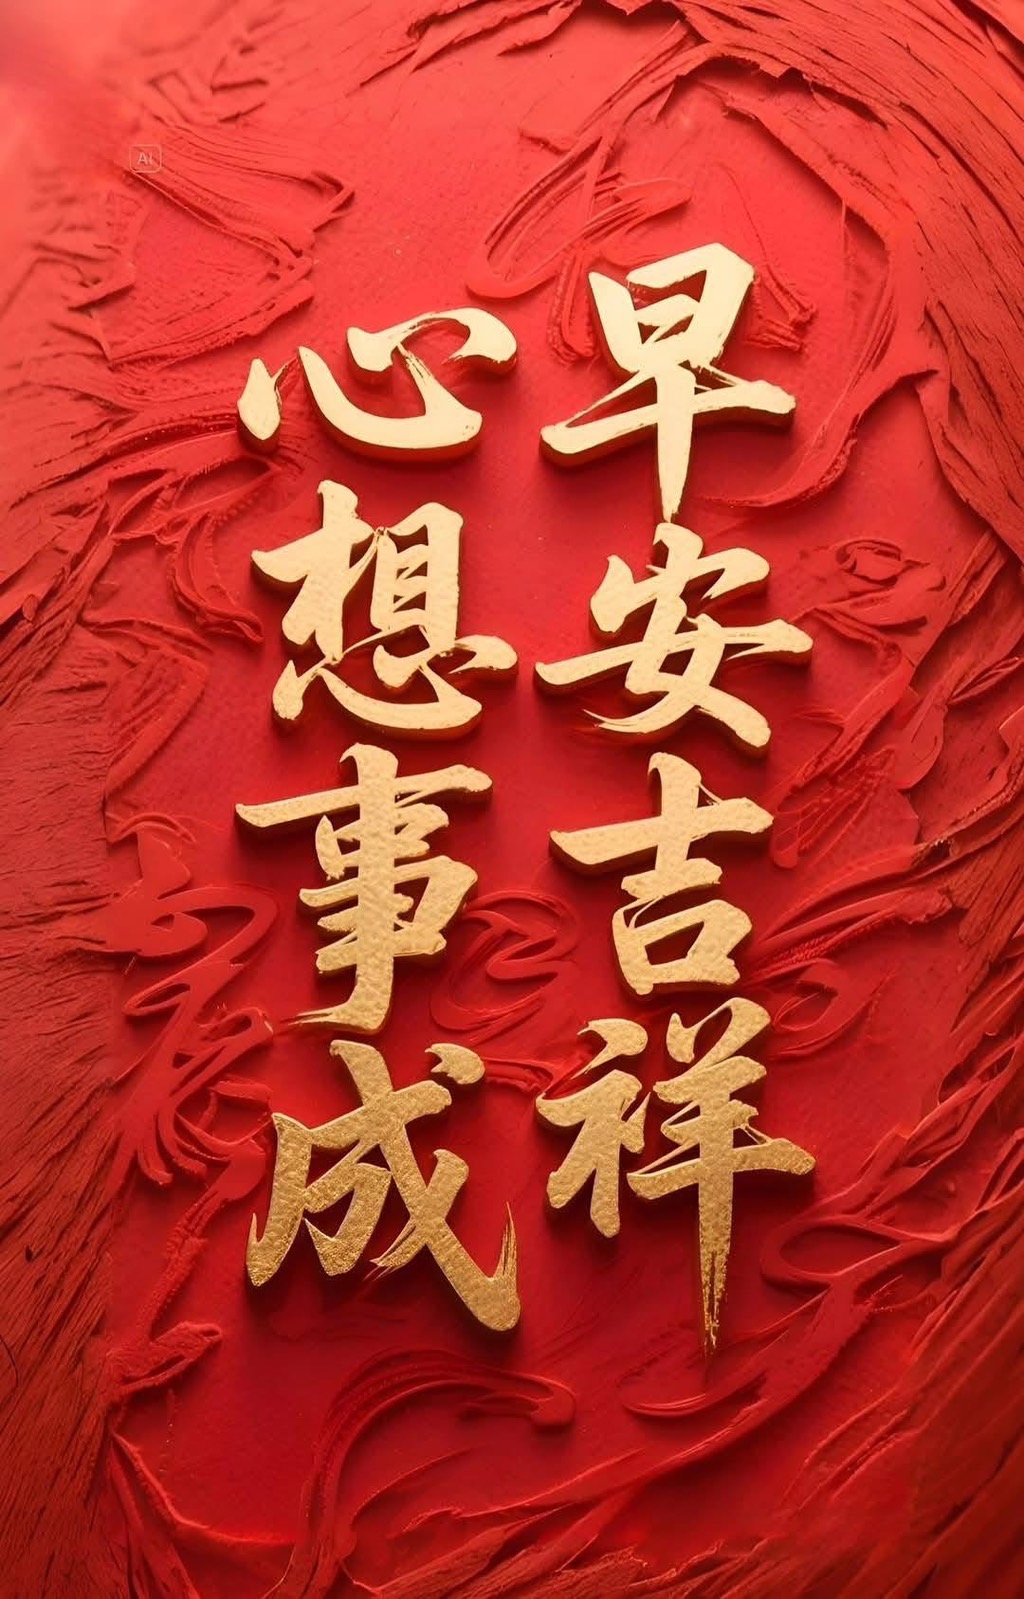 早安吉祥
心想事成
AI